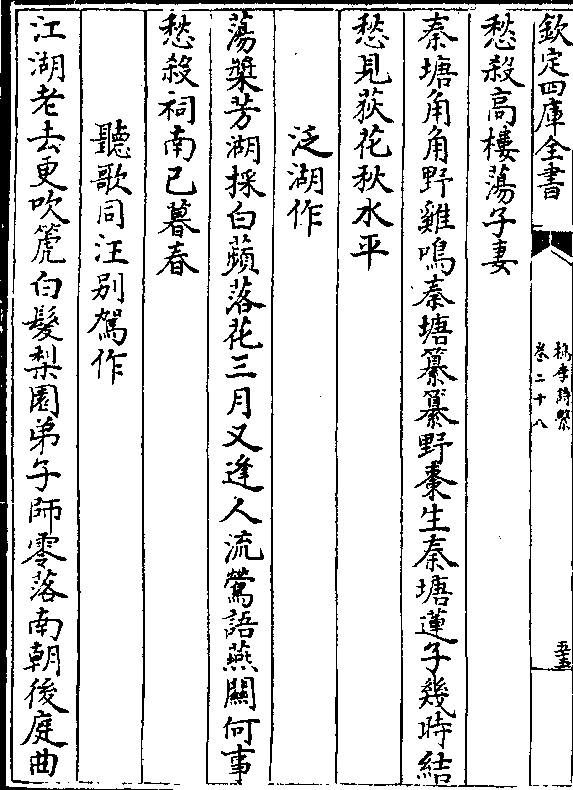 欽定四庫全書
檇李詩繫
卷二十八
五十五
愁殺高樓蕩子妻
秦塘角角野雞鳴秦塘纂纂野棗生秦塘蓮子幾時結
愁見荻花秋水平
泛湖作
蕩槳芳湖採白蘋落花三月又逢人流鶯語燕關何事
愁殺祠南已暮春
聽歌同汪別駕作
江湖老去更吹箎白髮梨園弟子師零落南朝後庭曲